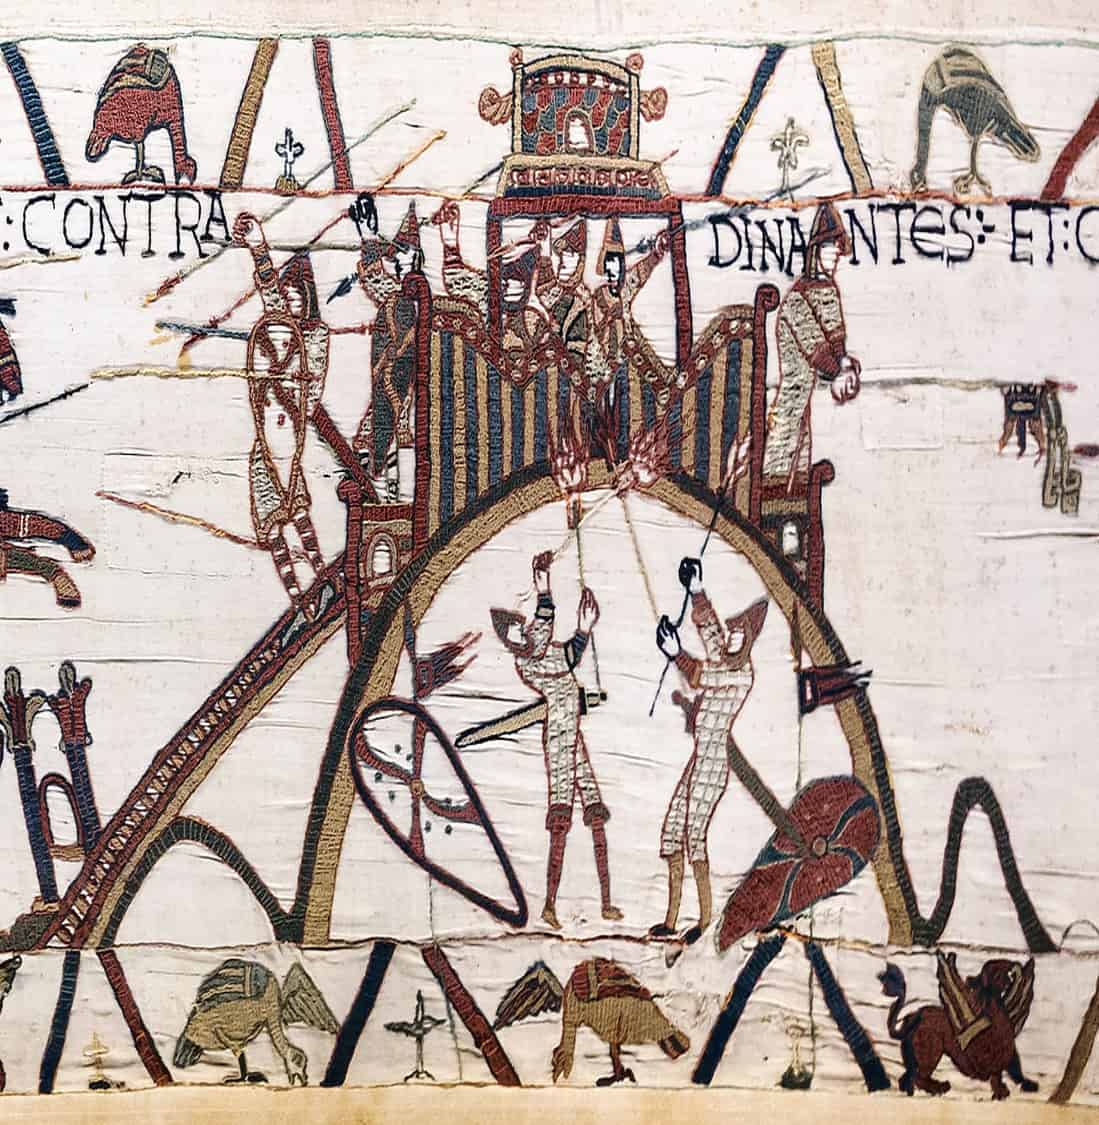 : CONTRA DINANTES :· ET : C